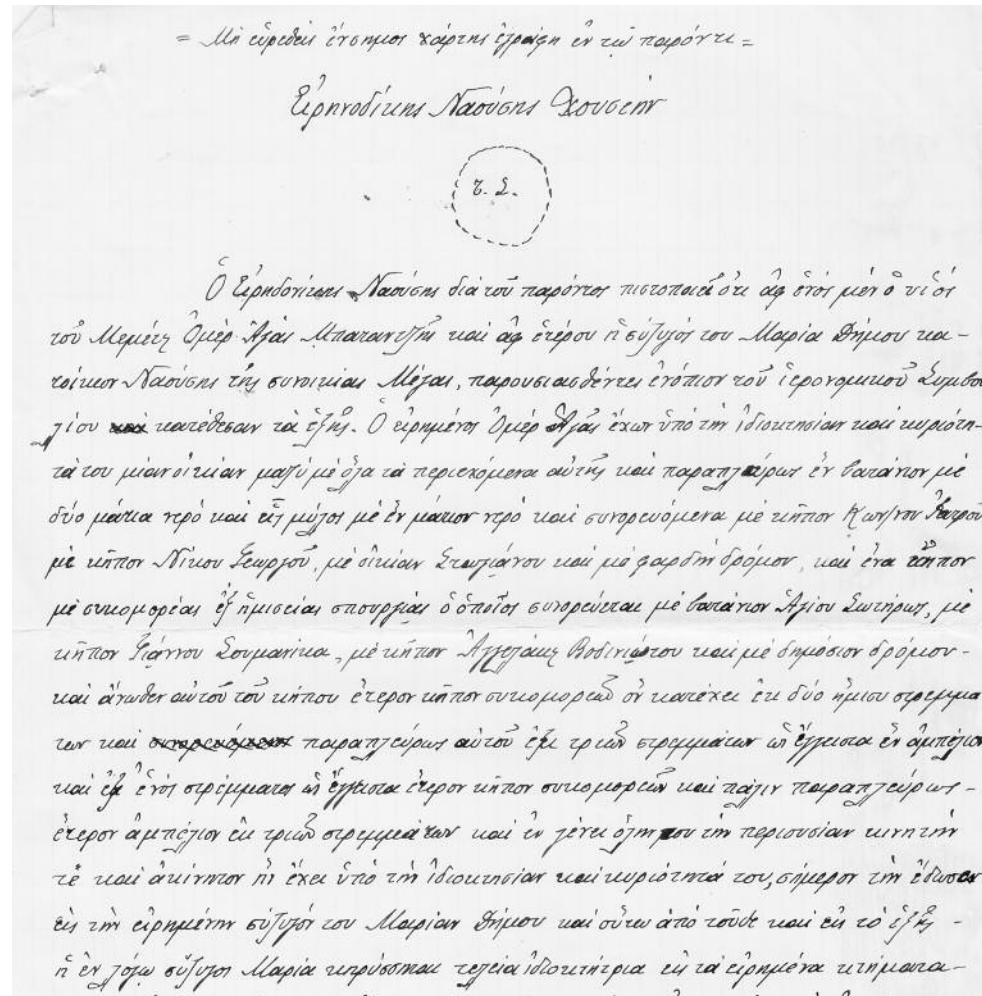 = Μὴ εὑρεθεὶς ἐνσημος χάρτης ἐγράφη ἐν τῷ παρόντι =
Εἰρηνοδίκης Ναούσης Χουσεήν
τ. Σ.
Ὁ Εἰρηδονίκης Ναούσης διὰ τοῦ παρόντος πιστοποιεῖ ὅτι ἀφ ἑνός μέν ὁ υἱός
τοῦ Μεμέτη Ὀμέρ Ἀγᾶς Μπατανντζῆς καὶ ἀφ ἑτέρου ἡ σύζυγός του Μαρία Δήμου κα-
τοίκων Ναούσης τῆς συνοικίας Μέγας, παρουσιασθέντες ἐνόπιον τοῦ ἱερονομικοῦ Συμβου
λίου κατέθεσαν τὰ ἑξῆς. Ὁ εἰρημένος Ὀμέρ Ἀγᾶς ἔχων ὑπὸ τὴν ἰδιοκτησίαν καὶ κυριότη-
τά του μίαν οἰκίαν μαζύ μὲ ὅλα τὰ περιεχόμενα αὐτῆς καὶ παραπλεύρως ἐν βατάνιον μὲ
δύο μάτια νερό καὶ εἷς μύλος μὲ ἐν μάτιον νερό καὶ συνορευόμενα μὲ κῆπον Κων/νου Ἰατροῦ
μὲ κῆπον Νίκου Γεωργίου, μὲ οἰκίαν Στωγιάνου καὶ μὲ φαρδὴν δρόμον, καὶ ἕνα κῆπον
μὲ συκομορέας ἐξ ἡμισείας σπουργιᾶς ὁ ὁποῖος συνορεύεται μὲ βατάνιον Ἁγίου Σωτήρως, μὲ
κῆπον Γιάννου Σουμανίκα, μὲ κῆπον Ἀγγελάκη Βοδινιώτου καὶ μὲ δημόσιον δρόμον -
καὶ ἄνωθεν αὐτοῦ τοῦ κήπου ἕτερον κῆπον συκομορεῶν ὃν κατέχει ἐκ δύο ἥμισυ στρεμμα
των καὶ παραπλεύρως αὐτοῦ ἐκ τριῶν στρεμμάτων ὡς ἔγγιστα ἐν ἀμπέλιον
καὶ ἐξ ἑνός στρέμματος ὡς ἔγγιστα ἕτερον κῆπον συκομορεῶν καὶ πάλιν παραπλεύρως -
ἕτερον ἀμπέλιον ἐκ τριῶν στρεμμάτων καὶ ἐν γένει ὅλην του τὴν περιουσίαν κινητὴν
τὲ καὶ ἀκίνητον ἣν ἔχει ὑπὸ τὴν ἰδιοκτησίαν καὶ κυριότητά του, σήμερον τὴν ἔδωσεν
εἰς τὴν εἰρημένην σύζυγόν του Μαρίαν Δήμου καὶ οὕτω ἀπὸ τοῦδε καὶ εἰς τὸ ἑξῆς -
ἡ ἐν λόγῳ σύζυγος Μαρία κηρύσσεται τελεία ἰδιοκτήτρια εἰς τὰ εἰρημένα κτήματα -